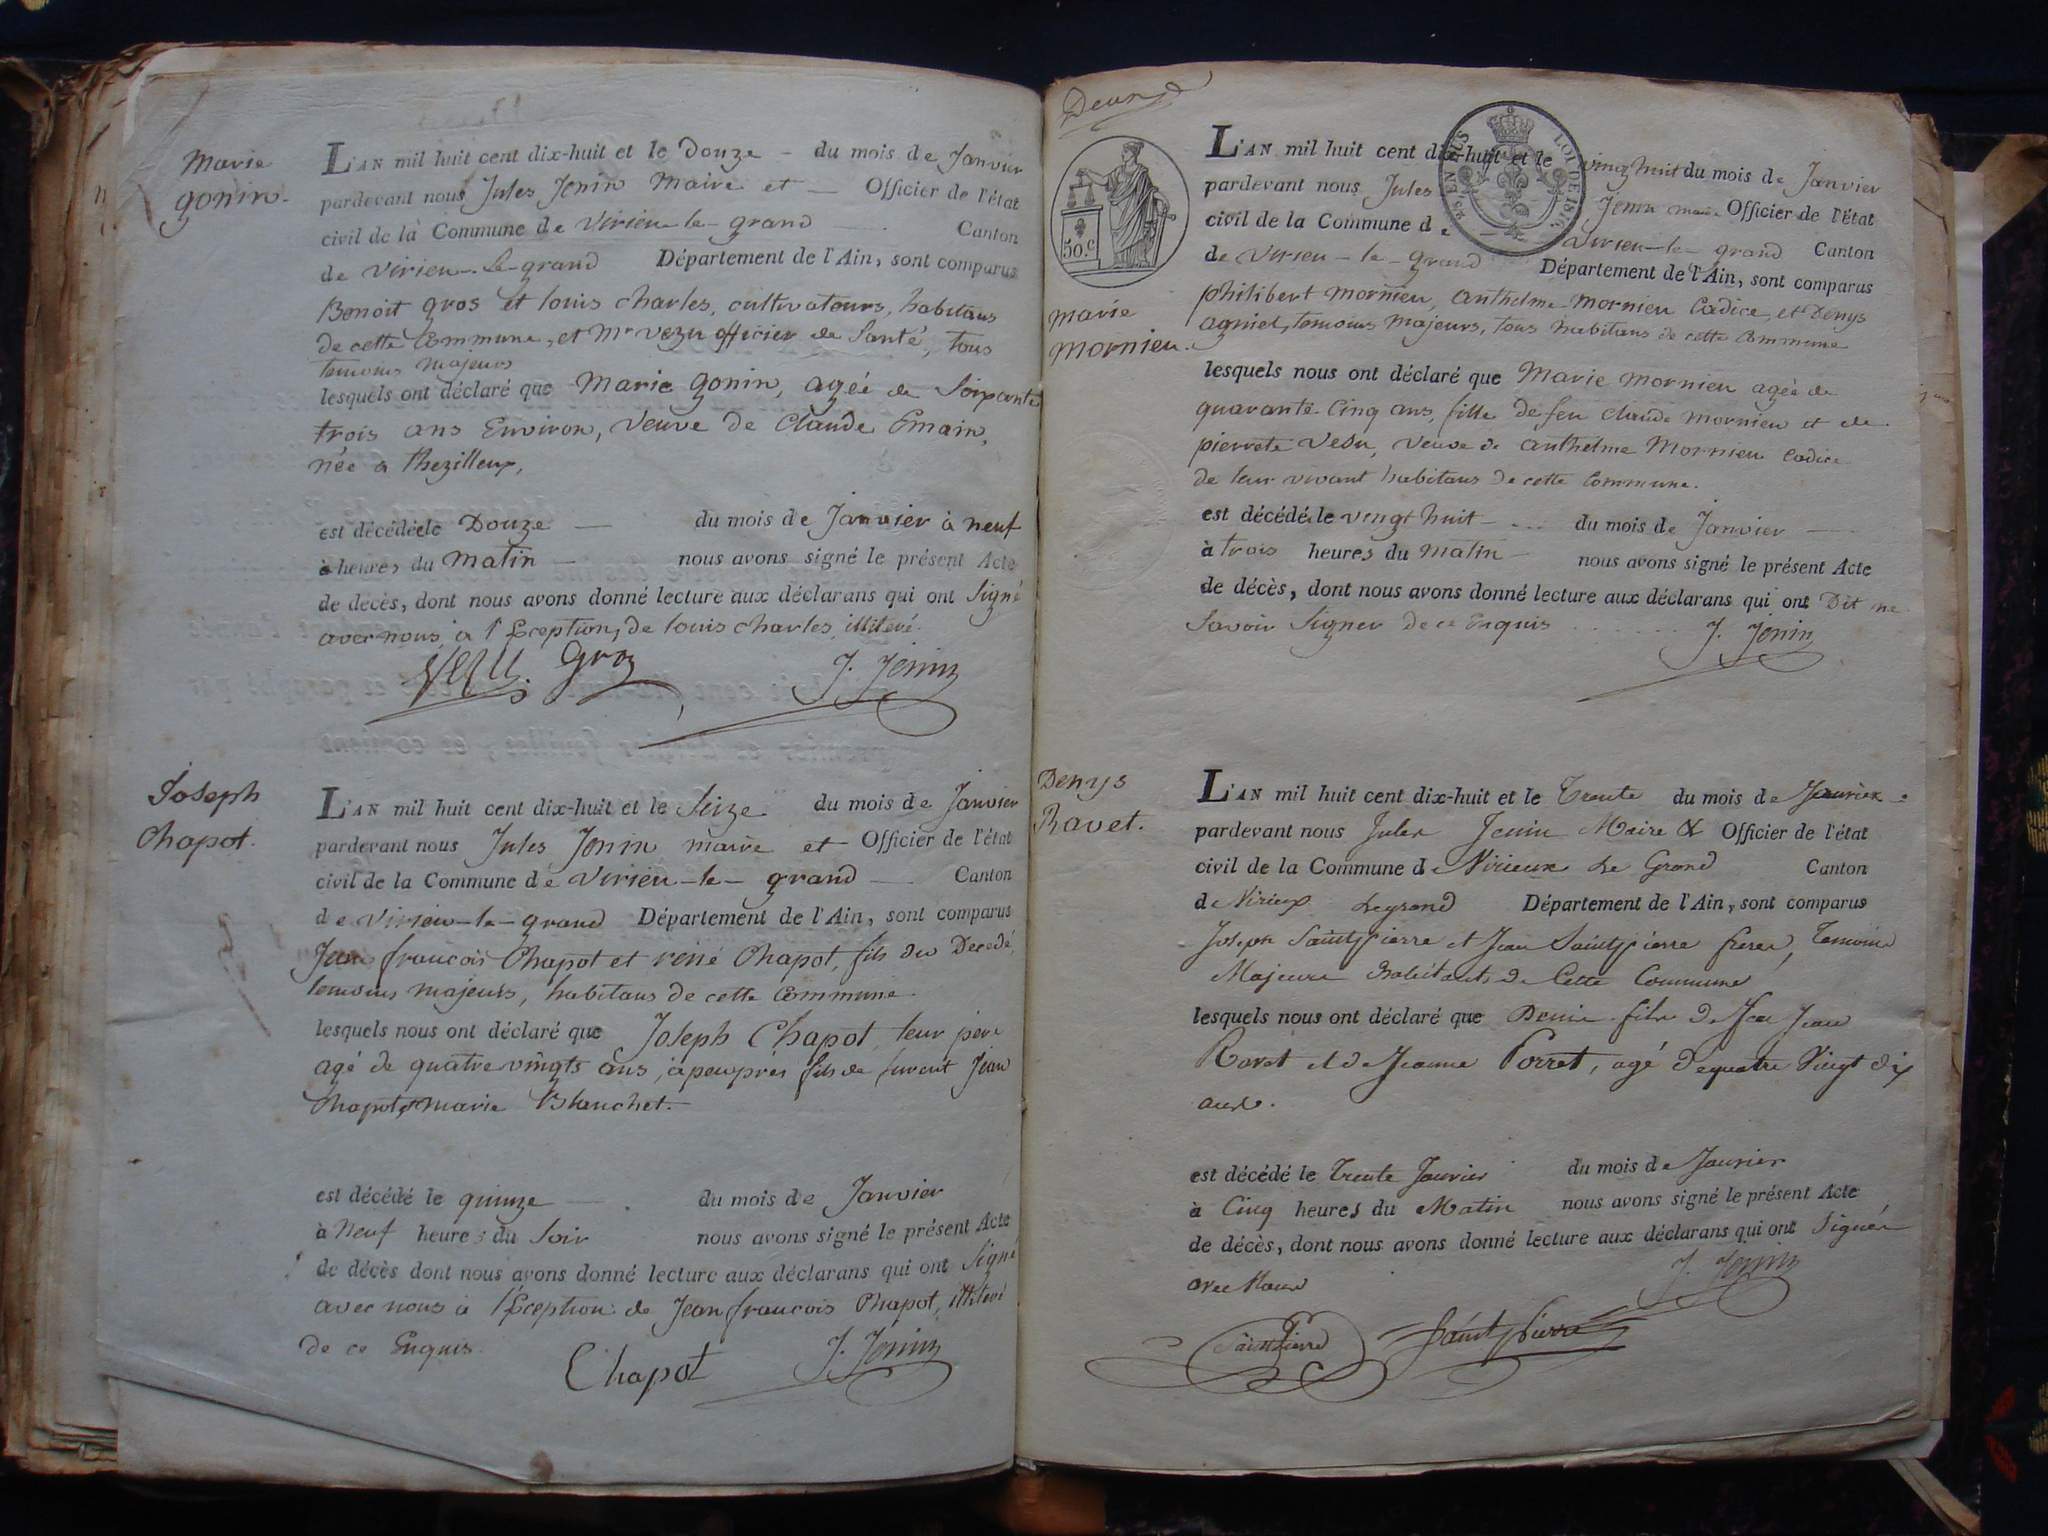 Marie
gonin.
L'AN mil huit cent dix-huit et le Douze du mois de Janvier
pardevant nous Jules Jenin Maire et Officier de l'état
civil de la Commune de virieu-le-grand Canton
de virieu-le-grand Département de l'Ain, sont comparus
Benoit gros et louis charles, cultivateurs, habitans
de cette Commune, et Mr vezu officier de Santé, tous
temoins majeurs
lesquels ont déclaré que Marie gonin, agée de Soixante
trois ans Environ, veuve de Claude Emain,
née a thezilleux,
est décédée le Douze du mois de Janvier à neuf
à heures du Matin nous avons signé le présent Acte
de décès, dont nous avons donné lecture aux déclarans qui ont Signé
avec nous, a l'Exception, de louis charles, illiteré.
Vezu. Groz J. Jenin
Joseph
Chapot.
L'AN mil huit cent dix-huit et le Seize du mois de Janvier
pardevant nous Jules Jenin maire et Officier de l'état
civil de la Commune de virieu-le-grand Canton
de virieu-le-grand Département de l'Ain, sont comparus
Jean françois Chapot et réné Chapot, fils du Decedé,
temoins majeurs, habitans de cette Commune.
lesquels nous ont déclaré que Joseph Chapot, leur pere
agé de quatre vingts ans, àpeuprès fils de furent Jean
Chapot et marie Blanchet.
est décédé le quinze du mois de Janvier
à Neuf heures du Soir nous avons signé le présent Acte
de décès dont nous avons donné lecture aux déclarans qui ont Signé
avec nous à l'Exception de Jean françois Chapot, illiteré
de ce Enquis
Chapot J. Jenin
50.C
EN SUS
LOI DE 1816
marie
Mornieu.
L'AN mil huit cent dix-huit et le vingt huit du mois de Janvier
pardevant nous Jules Jenin maire Officier de l'état
civil de la Commune de virieu-le-grand Canton
de virieu-le-grand Département de l'Ain, sont comparus
philibert mornieu, anthelme mornieu Cadice, et Denys
agniel, temoins majeurs, tous habitans de cette Commune
lesquels nous ont déclaré que Marie mornieu agée de
quarante-Cinq ans, fille de feu claude mornieu et de
pierrete vesu, veuve de anthelme Mornieu Cadice
de leur vivant habitans de cette Commune.
est décédé le vingt huit du mois de Janvier
à trois heures du Matin nous avons signé le présent Acte
de décès, dont nous avons donné lecture aux déclarans qui ont Dit ne
Savoir Signer de ce Enquis J. Jenin
Denys
Ravet.
L'AN mil huit cent dix-huit et le Trente du mois de Janvier
pardevant nous Jules Jenin Maire & Officier de l'état
civil de la Commune de Virieux Le Grand Canton
de Virieux Legrand Département de l'Ain, sont comparus
Joseph Saintpierre et Jean Saintpierre freres, Temoins
Majeurs habitants de Cette Commune
lesquels nous ont déclaré que Denis fils de feu Jean
Ravet et de Jeanne Porret, agé de quatre Vingt dix
ans.
est décédé le Trente Janvier du mois de Janvier
à Cinq heures du Matin nous avons signé le présent Acte
de décès, dont nous avons donné lecture aux déclarans qui ont Signés
avec Nous J. Jenin
Saintpierre Saintpierre